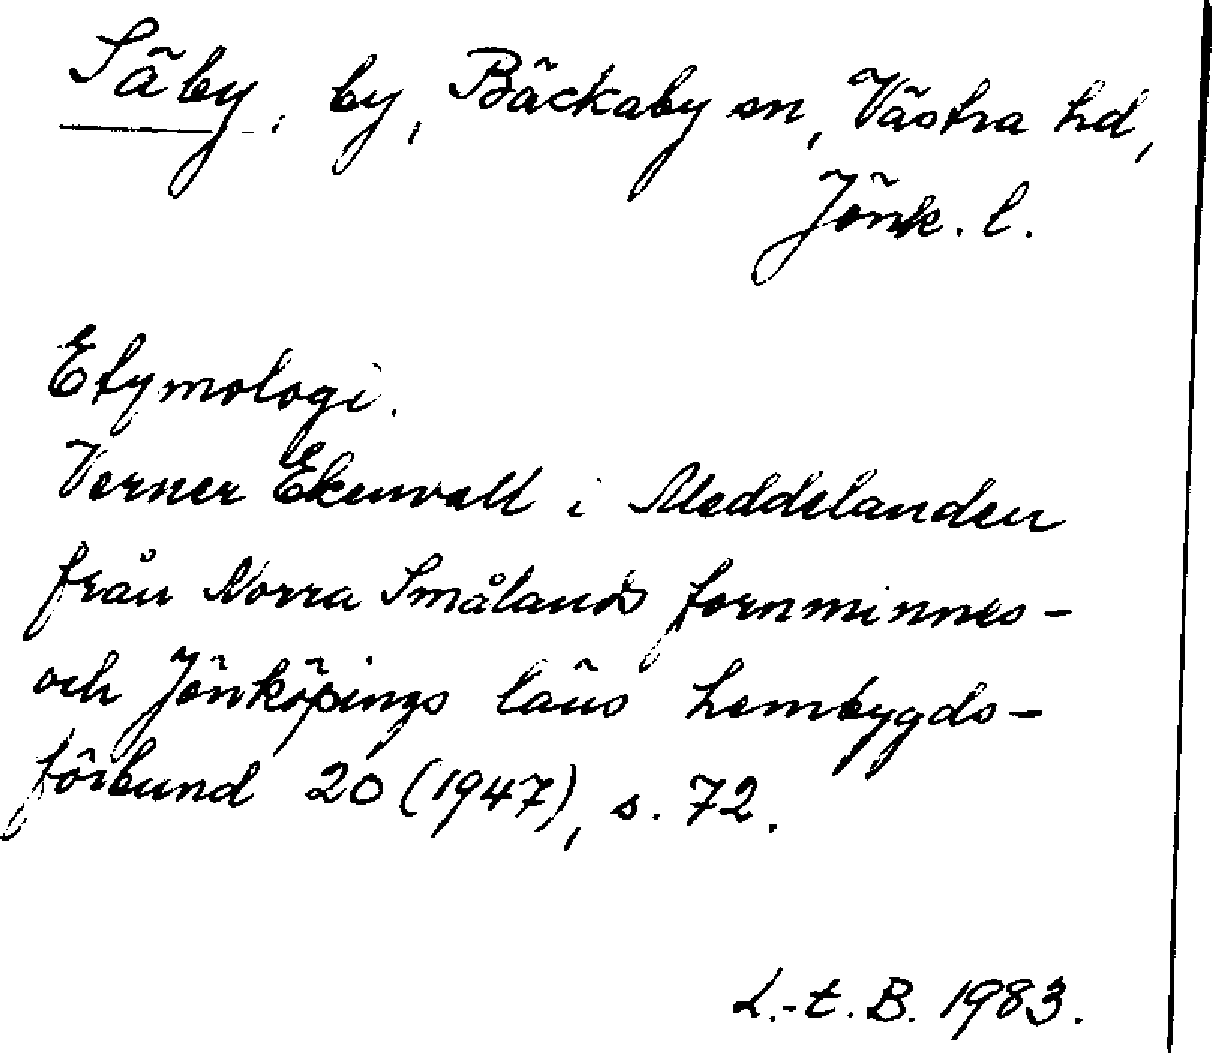 Säby, by, Bäckaby sn, Västra hd,
Jönk. l.
Etymologi.
Verner Ekenvall i Meddelanden
från Norra Smålands fornminnes-
och Jönköpings läns hembygds-
förbund 20 (1947), s. 72.
L.-t. B. 1983.